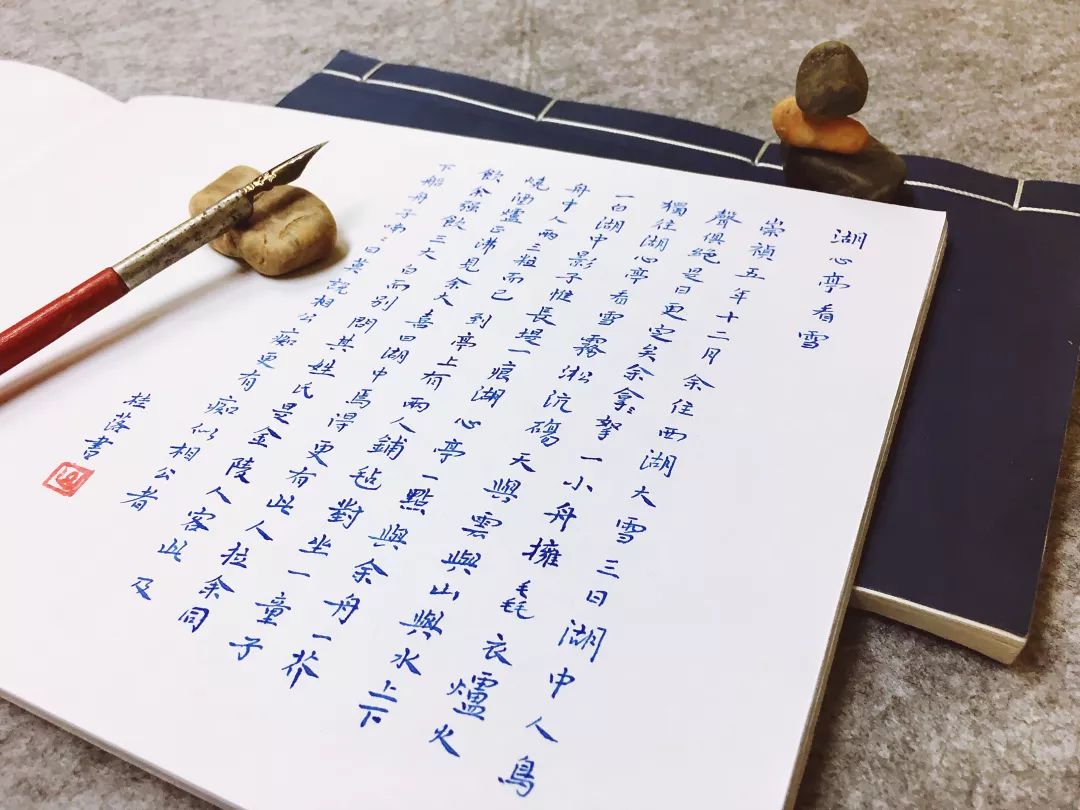 湖心亭看雪
崇禎五年十二月余住西湖大雪三日湖中人鳥
聲俱絕是日更定矣余拏一小舟擁毳衣爐火
獨往湖心亭看雪霧淞沆碭天與雲與山與水上下
一白湖中影子惟長堤一痕湖心亭一點與余舟一芥
舟中人兩三粒而已到亭上有兩人鋪毡對坐一童子
燒酒爐正沸見余大喜曰湖中焉得更有此人拉余同
飲余強飲三大白而別問其姓氏是金陵人客此及
下船舟子喃〻曰莫說相公痴更有痴似相公者
桂落書